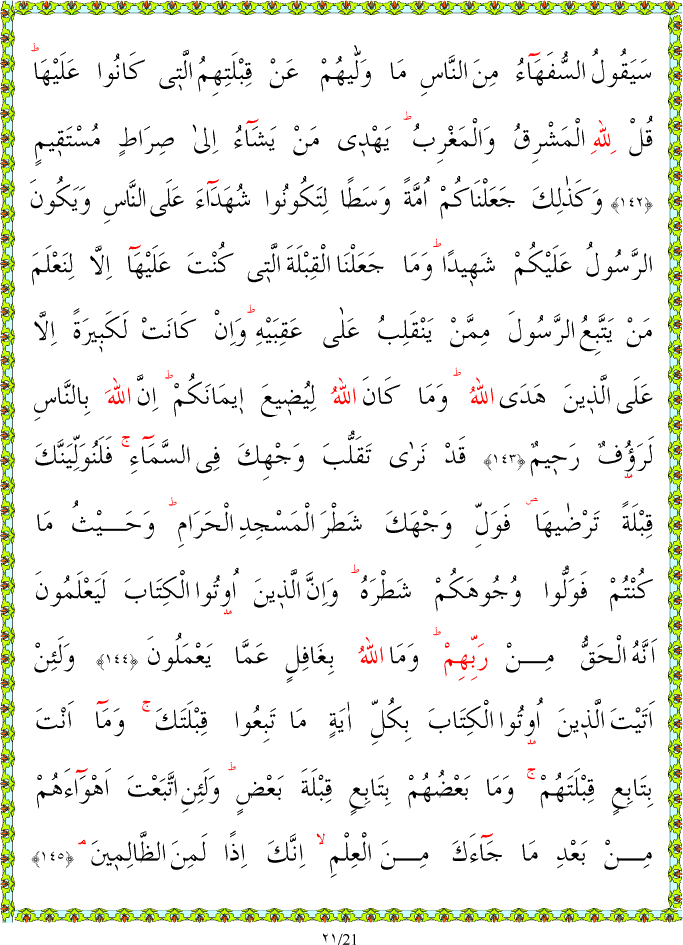 سَيَقُولُ السُّفَهَٓاءُ مِنَ النَّاسِ مَا وَلّٰيهُمْ عَنْ قِبْلَتِهِمُ الَّت۪ي كَانُوا عَلَيْهَاۜ
قُلْ لِلّٰهِ الْمَشْرِقُ وَالْمَغْرِبُۜ يَهْد۪ي مَنْ يَشَٓاءُ اِلٰى صِرَاطٍ مُسْتَق۪يمٍ
﴿١٤٢﴾ وَكَذٰلِكَ جَعَلْنَاكُمْ اُمَّةً وَسَطًا لِتَكُونُوا شُهَدَٓاءَ عَلَى النَّاسِ وَيَكُونَ
الرَّسُولُ عَلَيْكُمْ شَه۪يدًاۜ وَمَا جَعَلْنَا الْقِبْلَةَ الَّت۪ي كُنْتَ عَلَيْهَٓا اِلَّا لِنَعْلَمَ
مَنْ يَتَّبِعُ الرَّسُولَ مِمَّنْ يَنْقَلِبُ عَلٰى عَقِبَيْهِۜ وَاِنْ كَانَتْ لَكَب۪يرَةً اِلَّا
عَلَى الَّذ۪ينَ هَدَى اللّٰهُۜ وَمَا كَانَ اللّٰهُ لِيُض۪يعَ ا۪يمَانَكُمْۜ اِنَّ اللّٰهَ بِالنَّاسِ
لَرَؤُ۫فٌ رَح۪يمٌ ﴿١٤٣﴾ قَدْ نَرٰى تَقَلُّبَ وَجْهِكَ فِي السَّمَٓاءِۚ فَلَنُوَلِّيَنَّكَ
قِبْلَةً تَرْضٰيهَاۖ فَوَلِّ وَجْهَكَ شَطْرَ الْمَسْجِدِ الْحَرَامِۜ وَحَـــيْثُ مَا
كُنْتُمْ فَوَلُّوا وُجُوهَكُمْ شَطْرَهُۜ وَاِنَّ الَّذ۪ينَ اُو۫تُوا الْكِتَابَ لَيَعْلَمُونَ
اَنَّهُ الْحَقُّ مِـــنْ رَبِّهِمْۜ وَمَا اللّٰهُ بِغَافِلٍ عَمَّا يَعْمَلُونَ ﴿١٤٤﴾ وَلَئِنْ
اَتَيْتَ الَّذ۪ينَ اُو۫تُوا الْكِتَابَ بِكُلِّ اٰيَةٍ مَا تَبِعُوا قِبْلَتَكَۚ وَمَٓا اَنْتَ
بِتَابِعٍ قِبْلَتَهُمْۚ وَمَا بَعْضُهُمْ بِتَابِعٍ قِبْلَةَ بَعْضٍۜ وَلَئِنِ اتَّبَعْتَ اَهْوَٓاءَهُمْ
مِـــنْ بَعْدِ مَا جَٓاءَكَ مِـــنَ الْعِلْمِۙ اِنَّكَ اِذًا لَمِنَ الظَّالِم۪ينَۢ ﴿١٤٥﴾
٢١/21